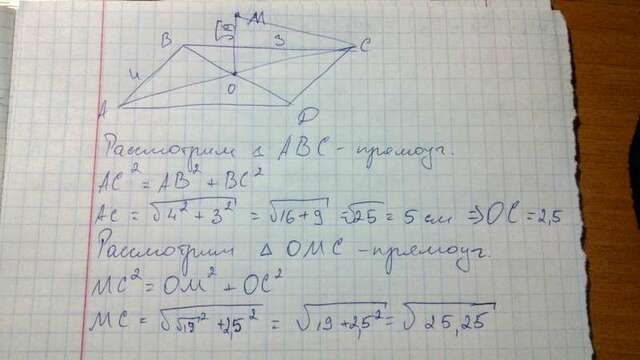 M
√19
B
3
C
4
O
A
D
Рассмотрим △ ABC - прямоуг.
AC² = AB² + BC²
AC = √4² + 3² = √16 + 9 = √25 = 5 см ⇒ OC = 2,5
Рассмотрим △ OMC - прямоуг.
MC² = OM² + OC²
MC = √√19² + 2,5² = √19 + 2,5² = √25,25